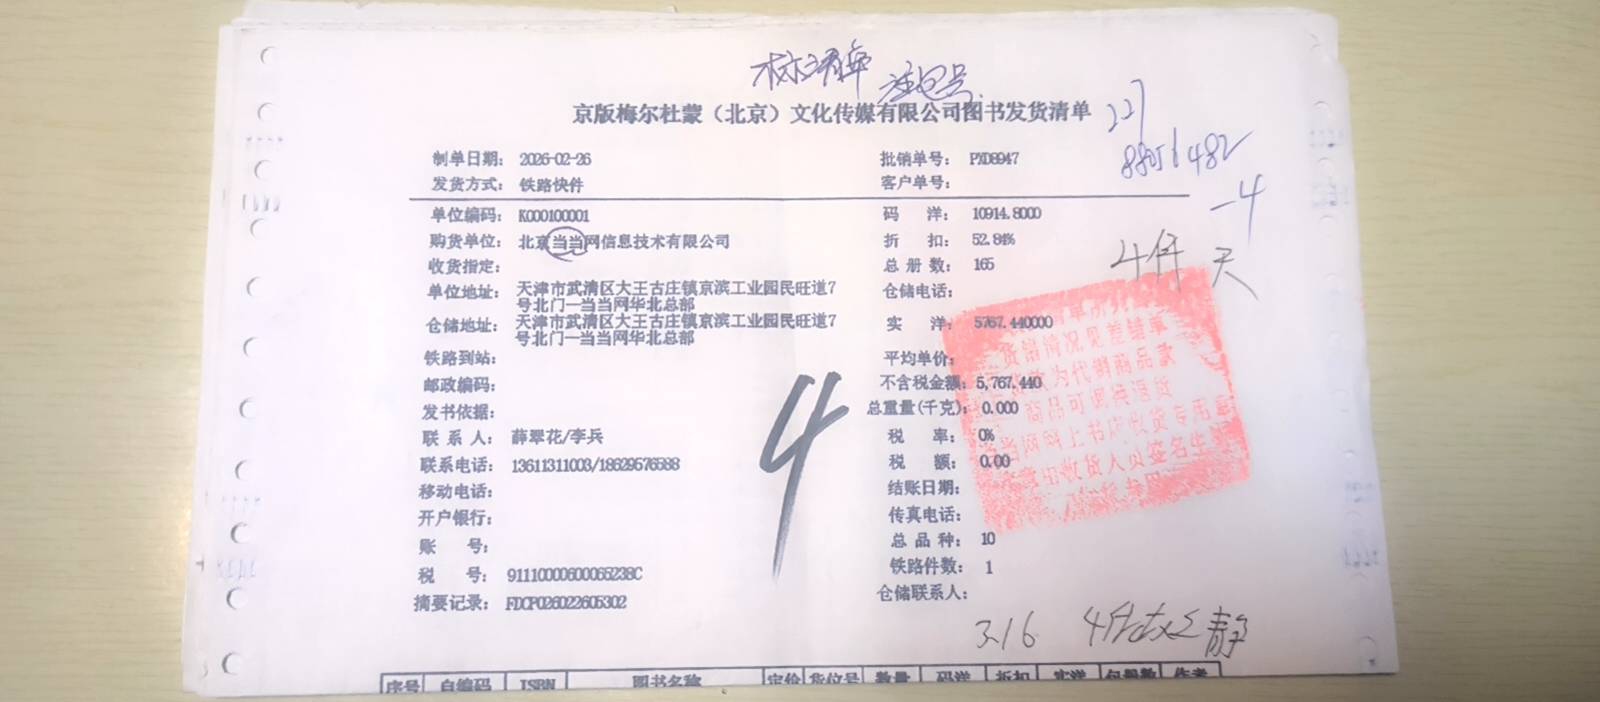 京版梅尔杜蒙（北京）文化传媒有限公司图书发货清单
227
制单日期： 2026-02-26 批销单号： PXD8947
发货方式： 铁路快件 客户单号：
-4
单位编码： K000100001 码 洋： 10914.8000
购货单位： 北京当当网信息技术有限公司 折 扣： 52.84%
4件 天
收货指定： 总 册 数： 165
单位地址： 天津市武清区大王古庄镇京滨工业园民旺道7 仓储电话：
号北门一当当网华北总部
仓储地址： 天津市武清区大王古庄镇京滨工业园民旺道7 实 洋： 5767.440000
号北门一当当网华北总部
铁路到站： 平均单价：
邮政编码： 不含税金额： 5,767.440
发书依据： 总重量(千克)： 0.000
4
联 系 人： 薛翠花/李兵 税 率： 0%
联系电话： 13611311003/18629576588 税 额： 0.00
移动电话： 结账日期：
开户银行： 传真电话：
账 号： 总 品 种： 10
税 号： 91110000600065238C 铁路件数： 1
摘要记录： FDCP026022605302 仓储联系人：
货错情况见差错单
为代销商品款
商品可调换退货
当网网上书店收货专用章
收货人员签名生
3.16 4件 静
序号 自编码 ISBN 图书名称 定价 货位号 数量 码洋 折扣 实洋 包册数 作者